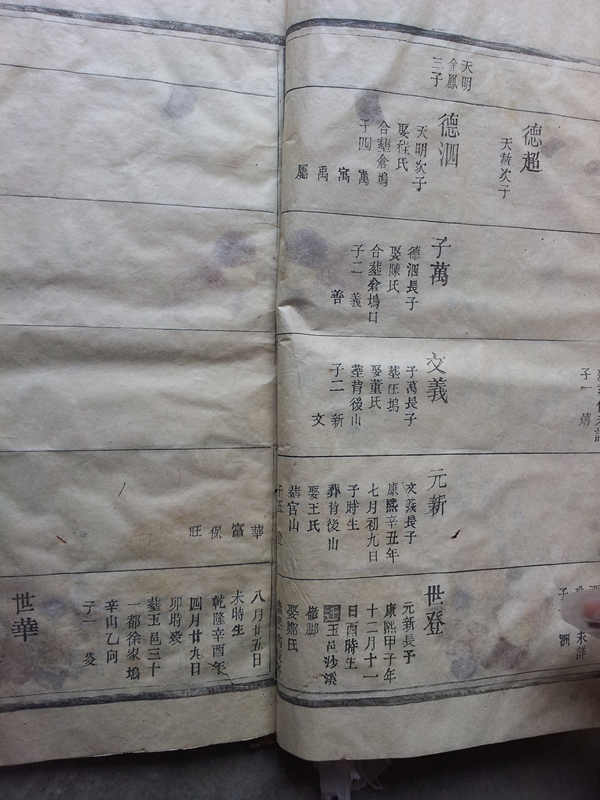 天明
金鳳
三子
德超
天赦次子
德泗
天明次子
娶程氏
合塟倉塢
子四
萬
寓
禹
子萬
德泗長子
娶陳氏
合塟倉塢口
子二
義
善
文義
子萬長子
娶董氏
塟背後山
子二
新
文
元新
文義長子
康熙辛丑年
七月初九日
子時生
葬背後山
娶王氏
塟官山
世登
元新長子
康熙甲子年
十二月十一
日酉時生
玉邑沙溪
華
富
保
旺
八月廿五日
未時生
乾隆辛酉年
四月廿九日
卯時歿
塟玉邑三十
一都徐家塢
辛山乙向
子一
世華